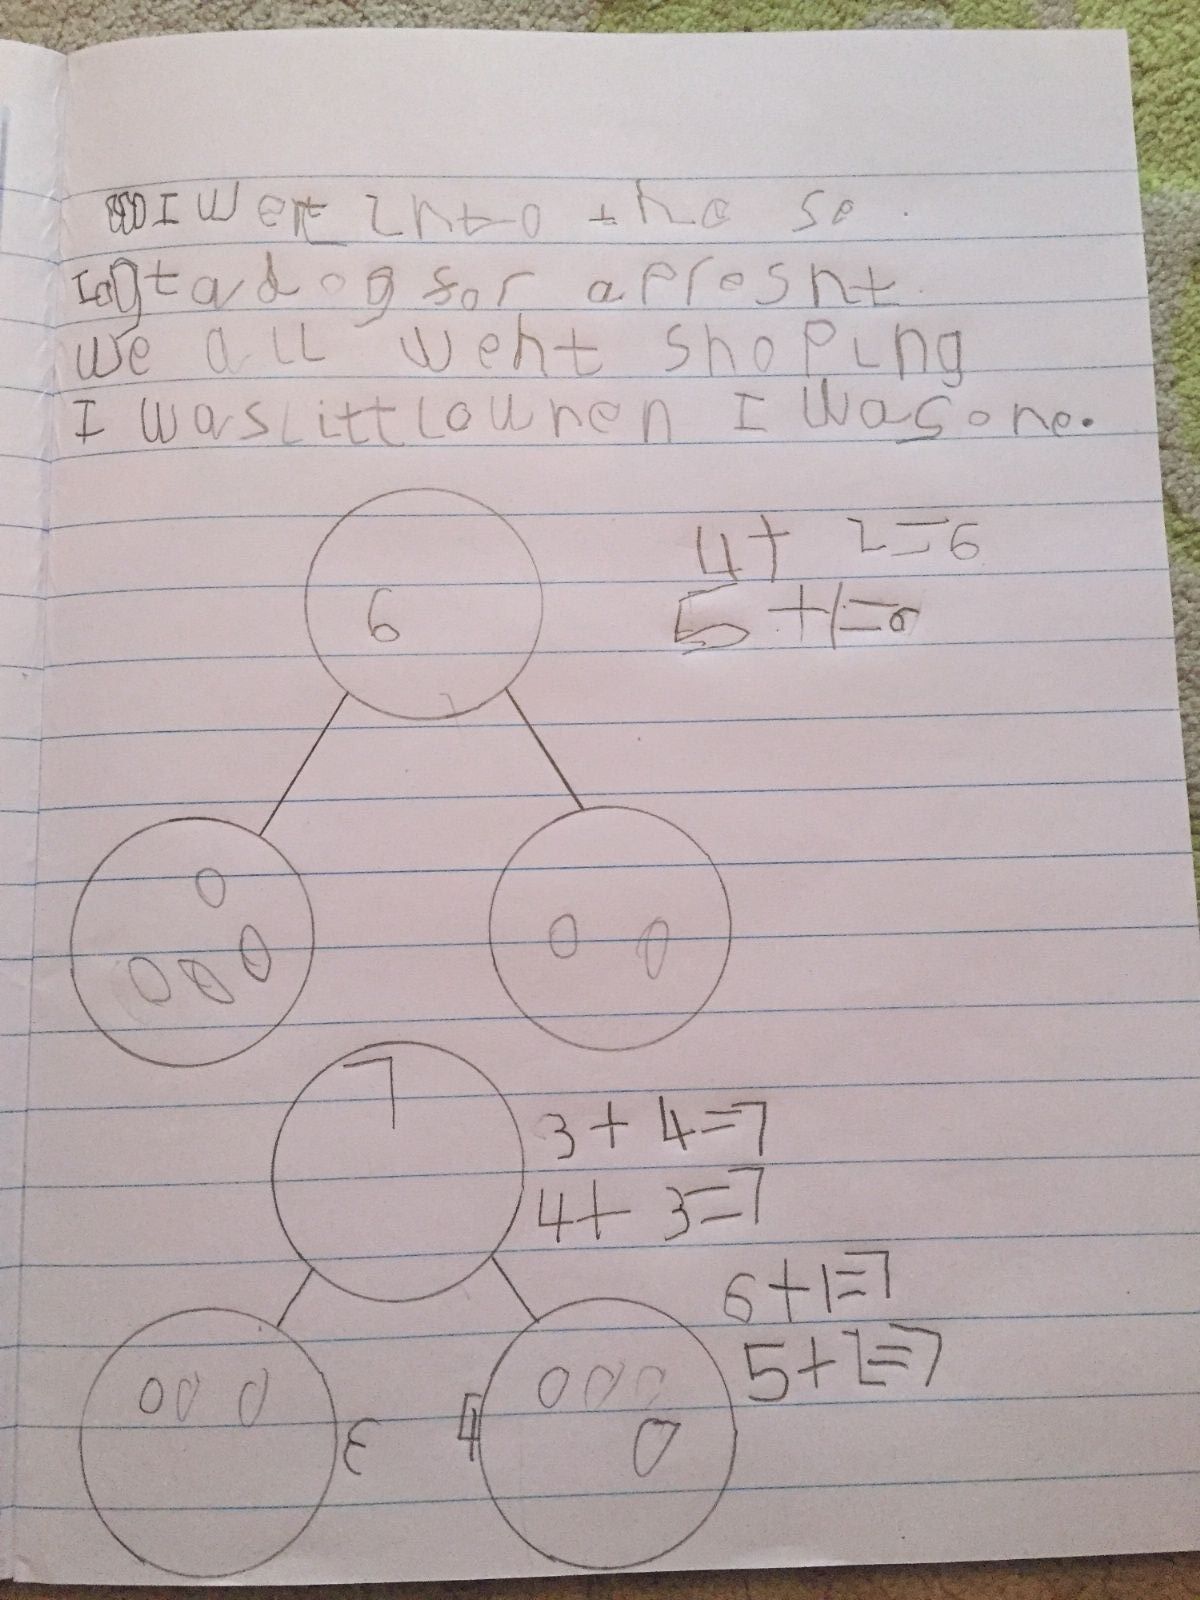 I went into the se.
I got a dog for a presnt.
we all went shoping
I was littlo when I was one.
6
4+ 2=6
5+1=6
7
3+4=7
4+3=7
6+1=7
5+2=7
3
4